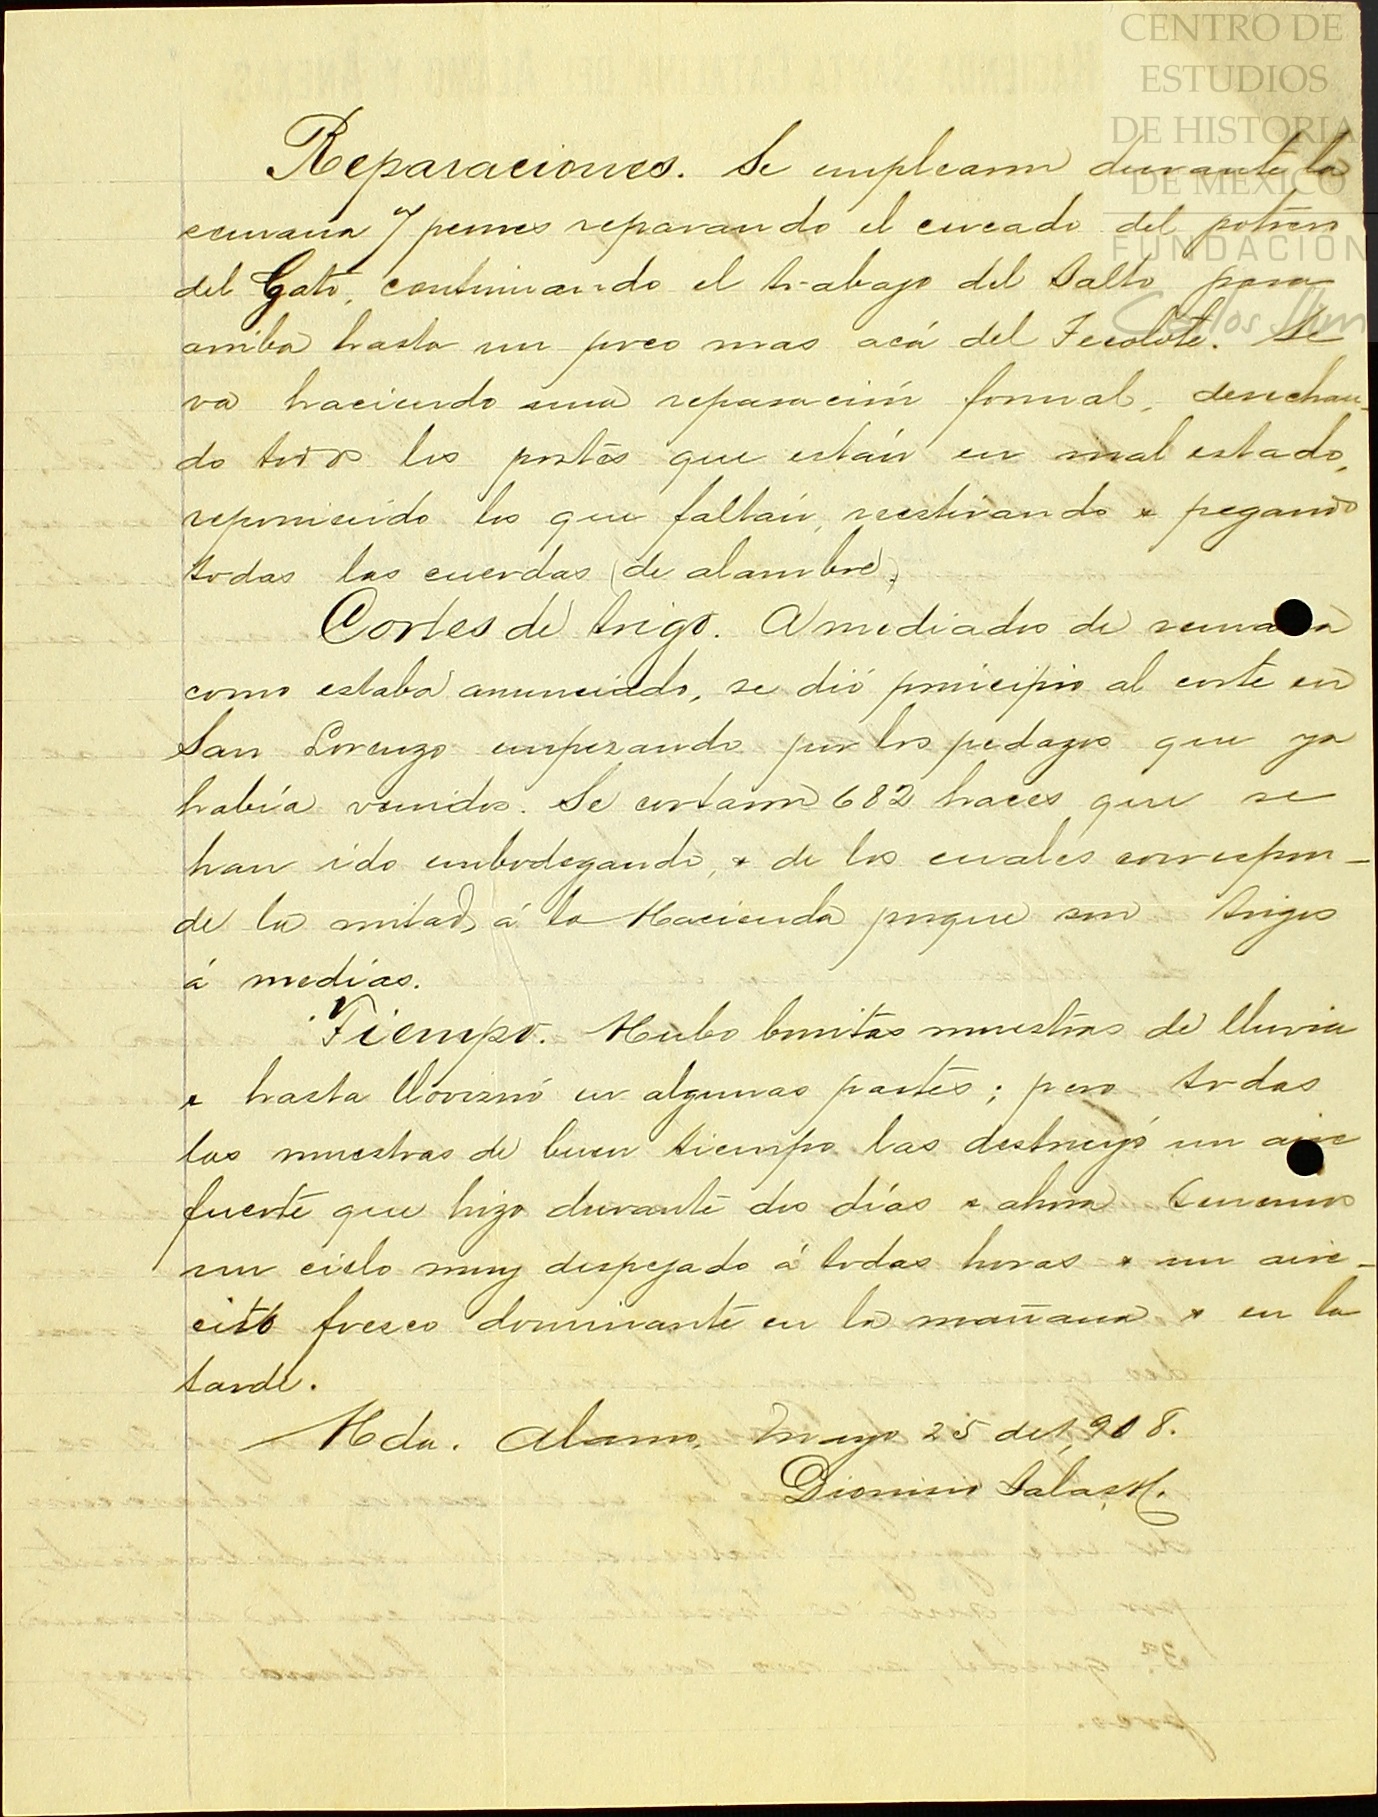 CENTRO DE
ESTUDIOS
DE HISTORIA
DE MÉXICO
FUNDACIÓN
Carlos Slim
Reparaciones. Se emplearon durante la
semana 7 peones reparando el cercado del potrero
del Gato, continuando el trabajo del Salto para
arriba hasta un poco mas acá del Tecolote. Se
va haciendo una reparación formal, desechan-
do todos los postes que están en mal estado,
reponiendo los que faltan, restirando y pegando
todas las cuerdas de alambre.
Cortes de trigo. A mediados de semana
como estaba anunciado, se dió principio al corte en
San Lorenzo empezando por los pedazos que ya
había venidos. Se cortaron 682 haces que se
han ido embodegando, y de los cuales correspon-
de la mitad á la Hacienda porque son trigos
á medias.
Tiempo. Hubo bonitas muestras de lluvia
y hasta lloviznó en algunas partes; pero todas
las muestras de buen tiempo las destruyó un aire
fuerte que hizo durante dos días y ahora tenemos
un cielo muy despejado á todas horas y un aire-
cito fresco dominante en la mañana y en la
tarde.
Hda. Alamo, Mayo 25 de 1,908.
Dionisio Salas H.